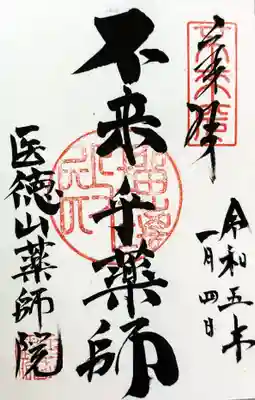 奉拝
令和五年
一月四日
不来乎薬師
医徳山薬師院